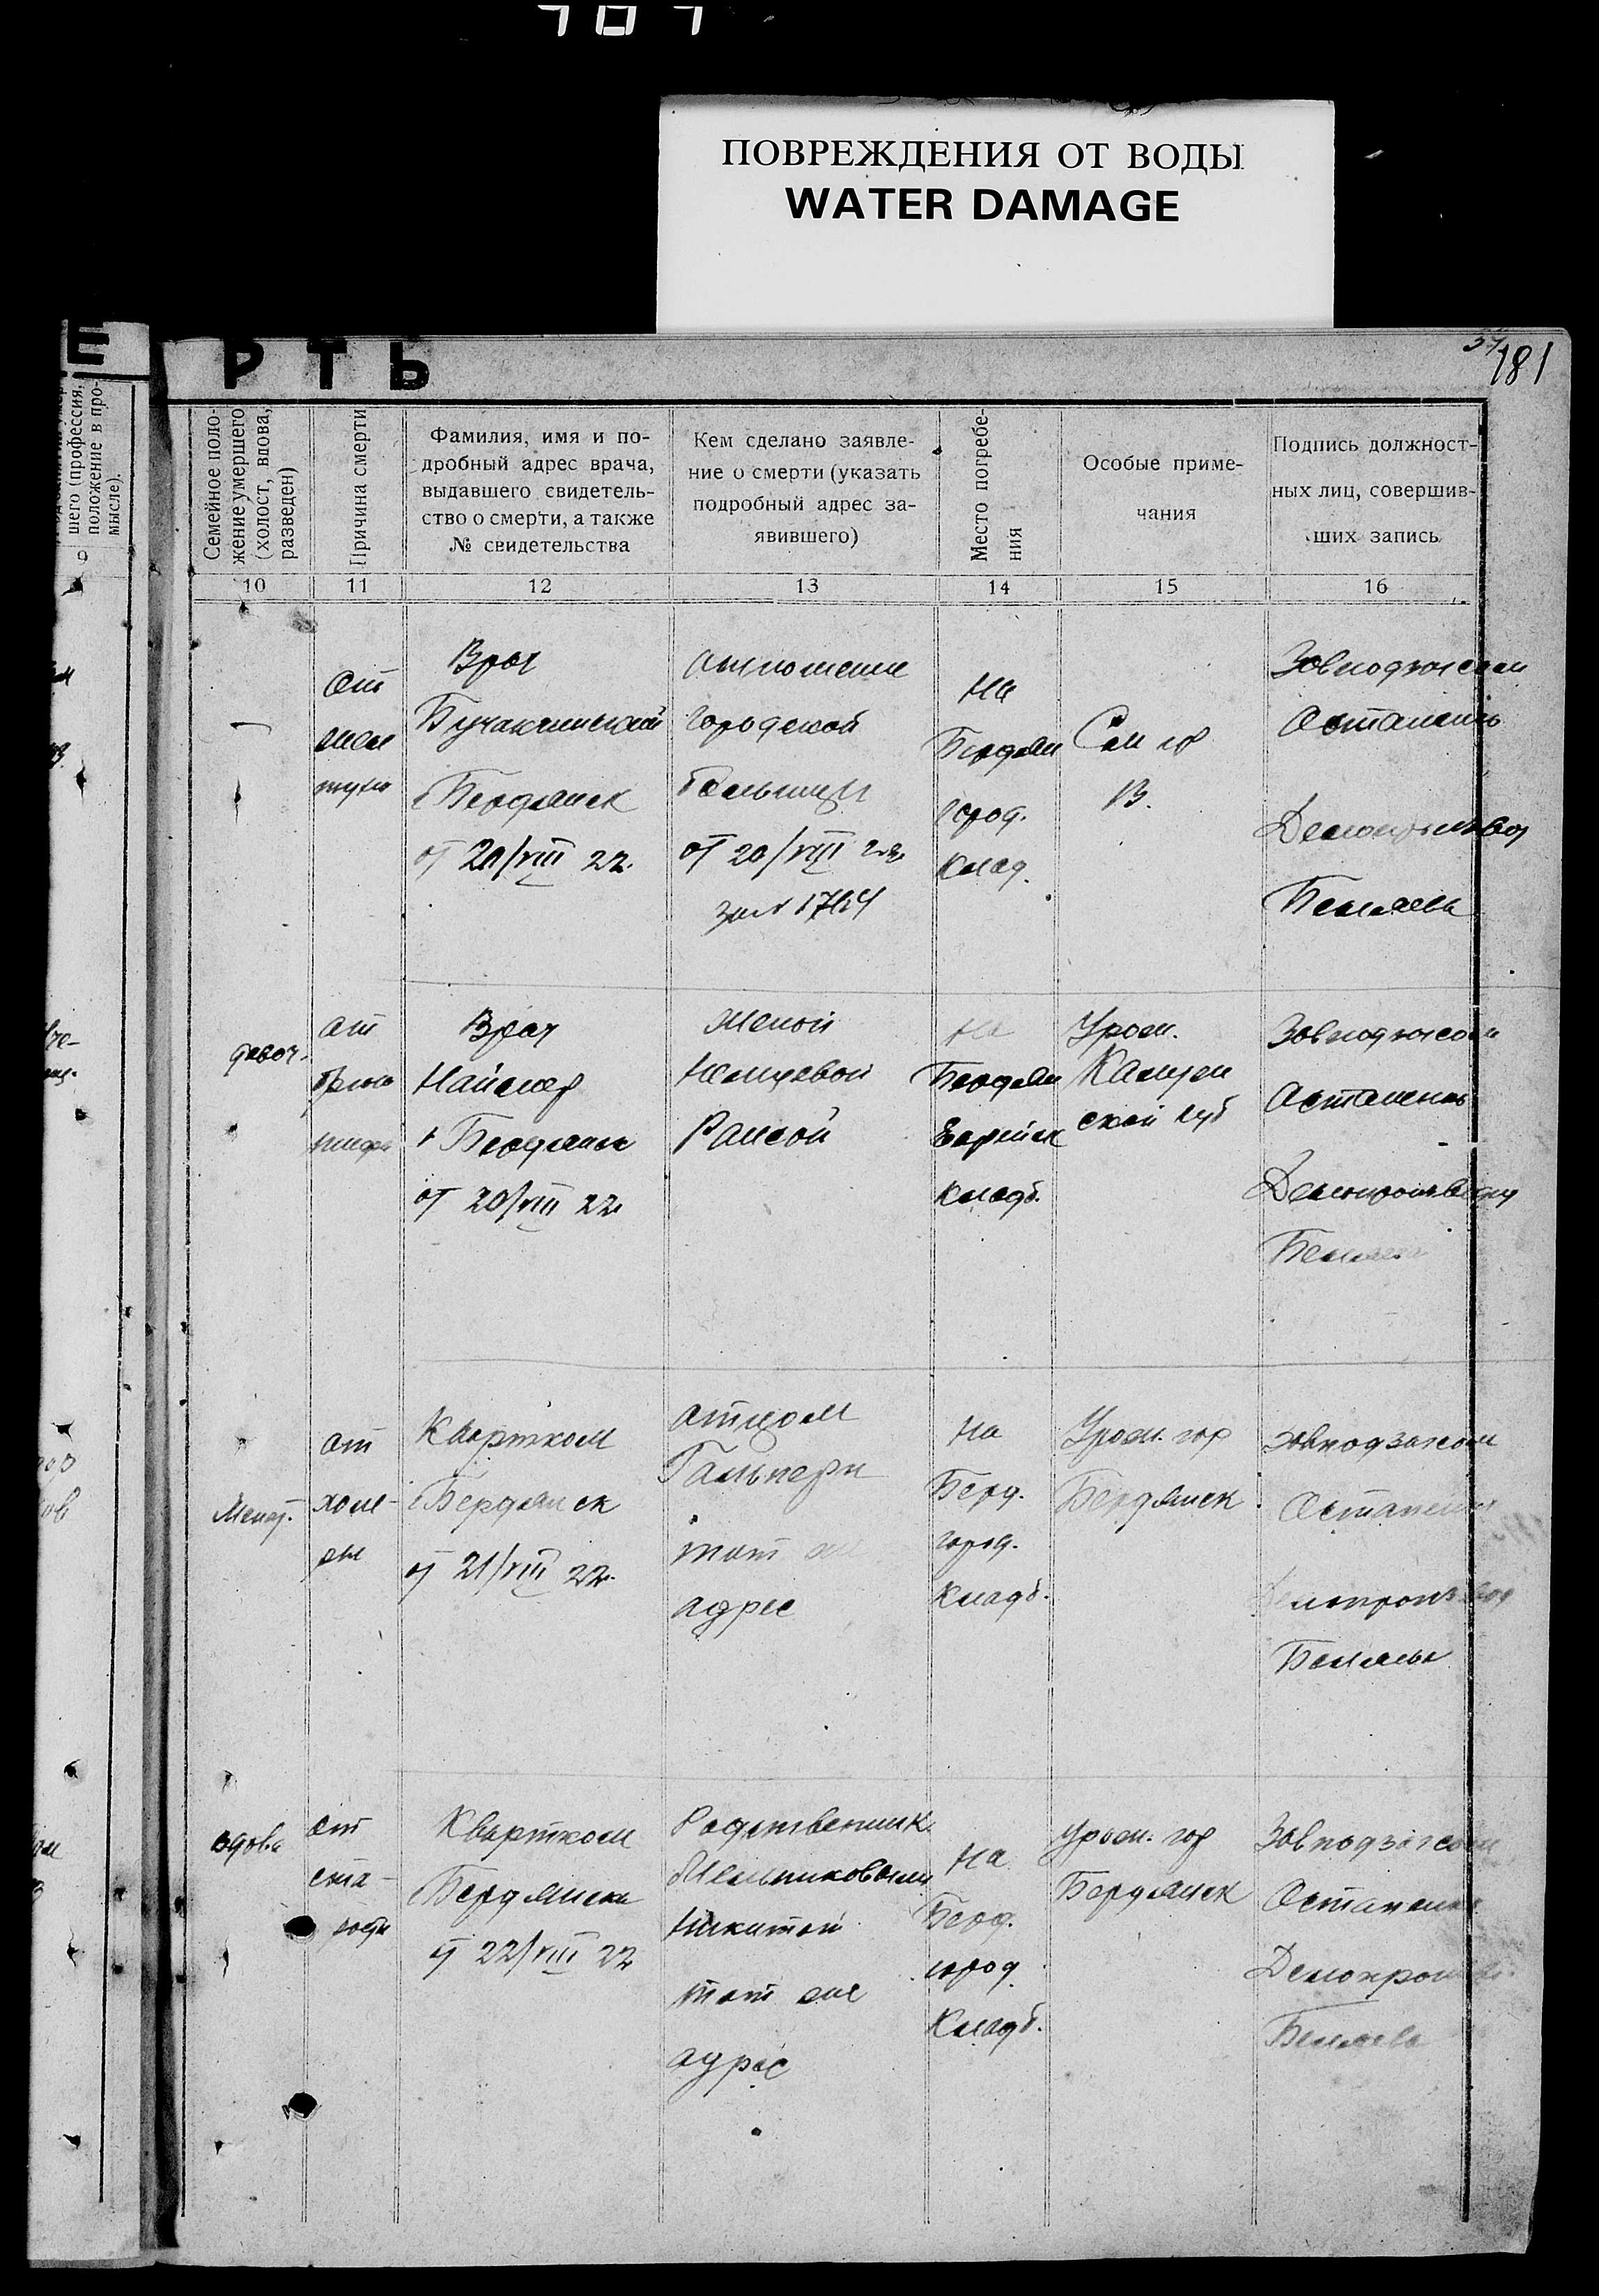 ПОВРЕЖДЕНИЯ ОТ ВОДЫ
WATER DAMAGE
181
Е
РТЬ
шего (профессия,
положение в про-
мысле).
Семейное поло-
жение умершего
(холост, вдова,
разведен)
Причина смерти
Фамилия, имя и по-
дробный адрес врача,
выдавшего свидетель-
ство о смерти, а также
№ свидетельства
Кем сделано заявле-
ние о смерти (указать
подробный адрес за-
явившего)
Место погребе-
ния
Особые приме-
чания
Подпись должност-
ных лиц, совершив-
ших запись
9
10
11
12
13
14
15
16
От
Врач
г Бердянск
от 20/VIII 22.
городской
больницы
от 20/VIII 22.
На
Бердян
город.
клад.
Завподзагсом
Остапенко
Беляева
от
Врач
г Бердянск
от 20/VIII 22
Женой
На
Бердян
Еврейск
кладб.
Урож.
ской губ
Завподзагсом
Остапенко
Делопроизвод
Беляева
Женат.
от
холе-
ры
Квартком
г Бердянск
от 21/VIII 22.
отцом
Гальперн
тот же
адрес
На
Берд.
город.
кладб.
Урож. гор
Бердянск
Завподзагсом
Остапенко
Делопроизвод
Беляева
вдова
от
ста-
рости
Квартком
г Бердянска
от 22/VIII 22
Родственник
Мельниковым
Никитой
тот же
адрес
На
Берд.
город.
Кладб.
Урож. гор
Бердянск
Завподзагсом
Остапенко
Делопроизв.
Беляева